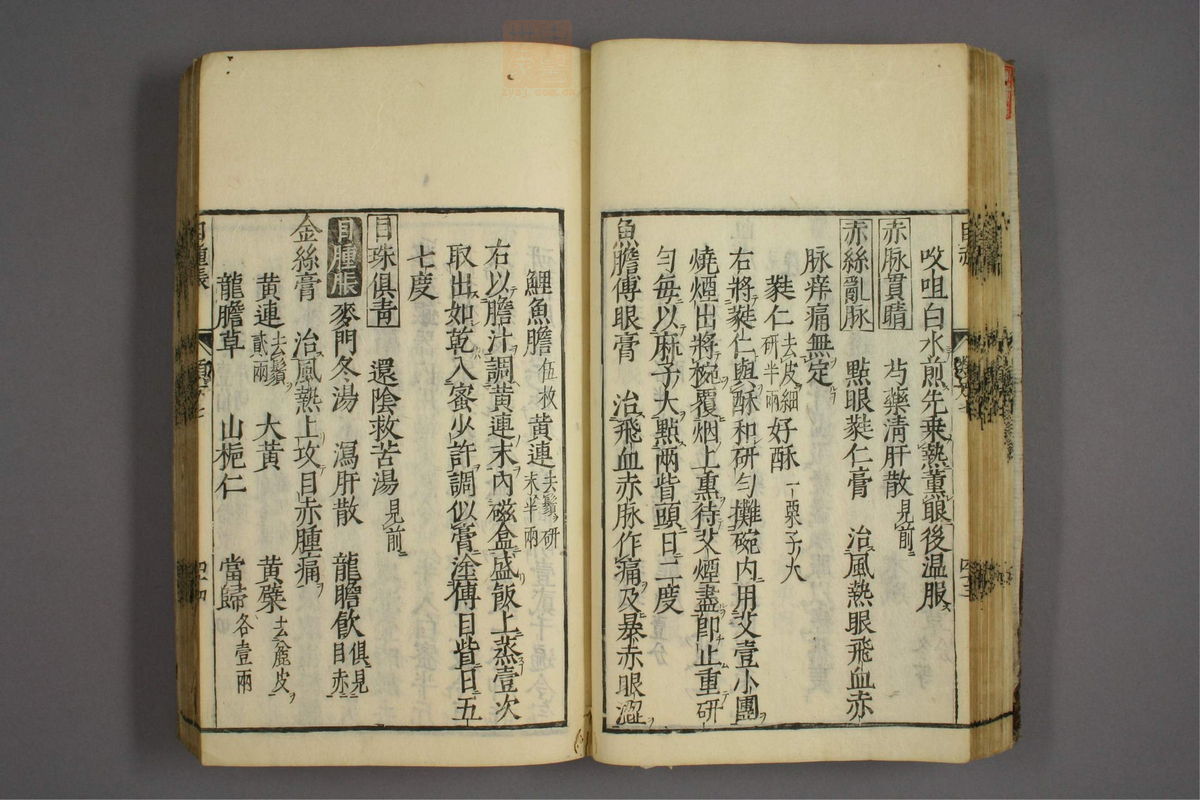 㕮咀白水煎先乗熱薫眼後温服
赤脉貫睛　芍藥清肝散見前
赤絲亂脉　㸃眼蕤仁膏　治風熱眼飛血赤
脉痒痛無定
蕤仁去皮細研半兩　好酥一栗子大
右將蕤仁與酥和研匀攤碗内用艾壹小團
燒煙出將椀覆烟上熏待艾煙盡即止重研
匀毎以麻子大點兩眥頭日二度
魚膽傅眼膏　治飛血赤脉作痛及暴赤眼澀
鯉魚膽伍枚　黄連去鬚研末半兩
右以膽汁調黄連末内磁盒盛飯上蒸壹次
取出如乾入蜜少許調似膏塗傅目眥日五
七度
目珠俱青　還陰救苦湯見前
目腫脹　麥門冬湯　瀉肝散　龍膽飲俱見目赤
金絲膏　治風熱上攻目赤腫痛
黄連去鬚貳兩　大黄　黄檗去麄皮
龍膽草　山梔仁　當歸各壹兩
目腫脹
四十四